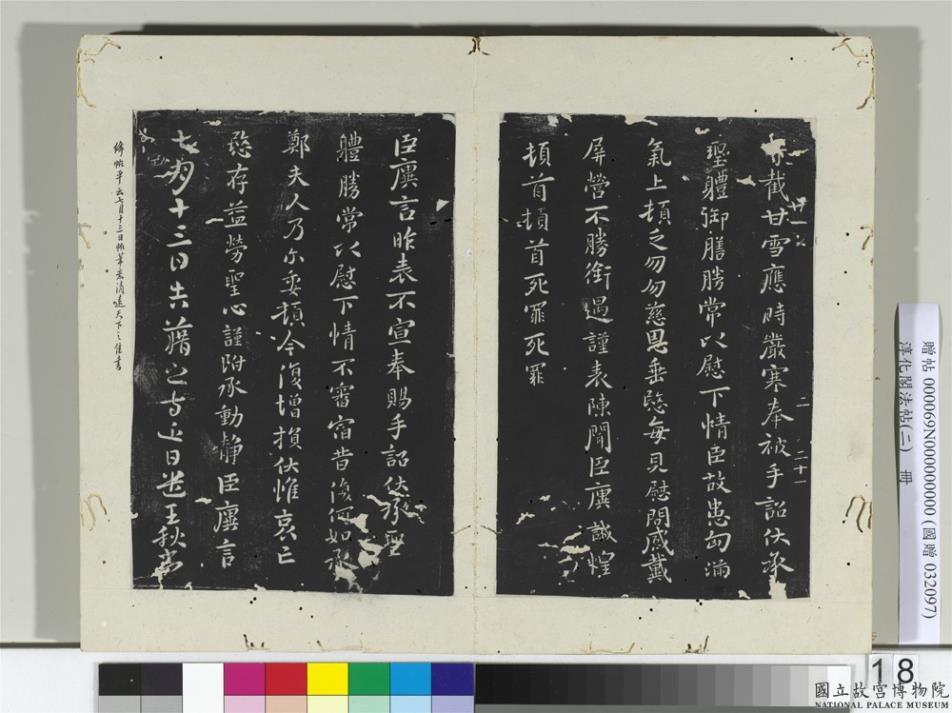 截甘雪應時嚴寒奉被手詔伏承
聖體御膳勝常以慰下情臣故患匈滿
氣上頓乏勿勿慈恩垂愍每見慰問感戴
屏營不勝銜遇謹表陳聞臣廙誠惶
頓首頓首死罪死罪
二 二十一
臣廙言昨表不宣奉賜手詔伏承聖
體勝常以慰下情不審宿昔復何如承
鄭夫人乃尒委頓今復增損伏惟哀亡
愍存益勞聖心謹附承動靜臣廙言
七月十三日告藉之等近日遣王秋
絳帖平云七月十三日帖筆意清遠天下之佳書
贈帖 000069N000000000 (國贈 032097)
淳化閣法帖(二) 冊
18
國立故宮博物院
NATIONAL PALACE MUSEUM